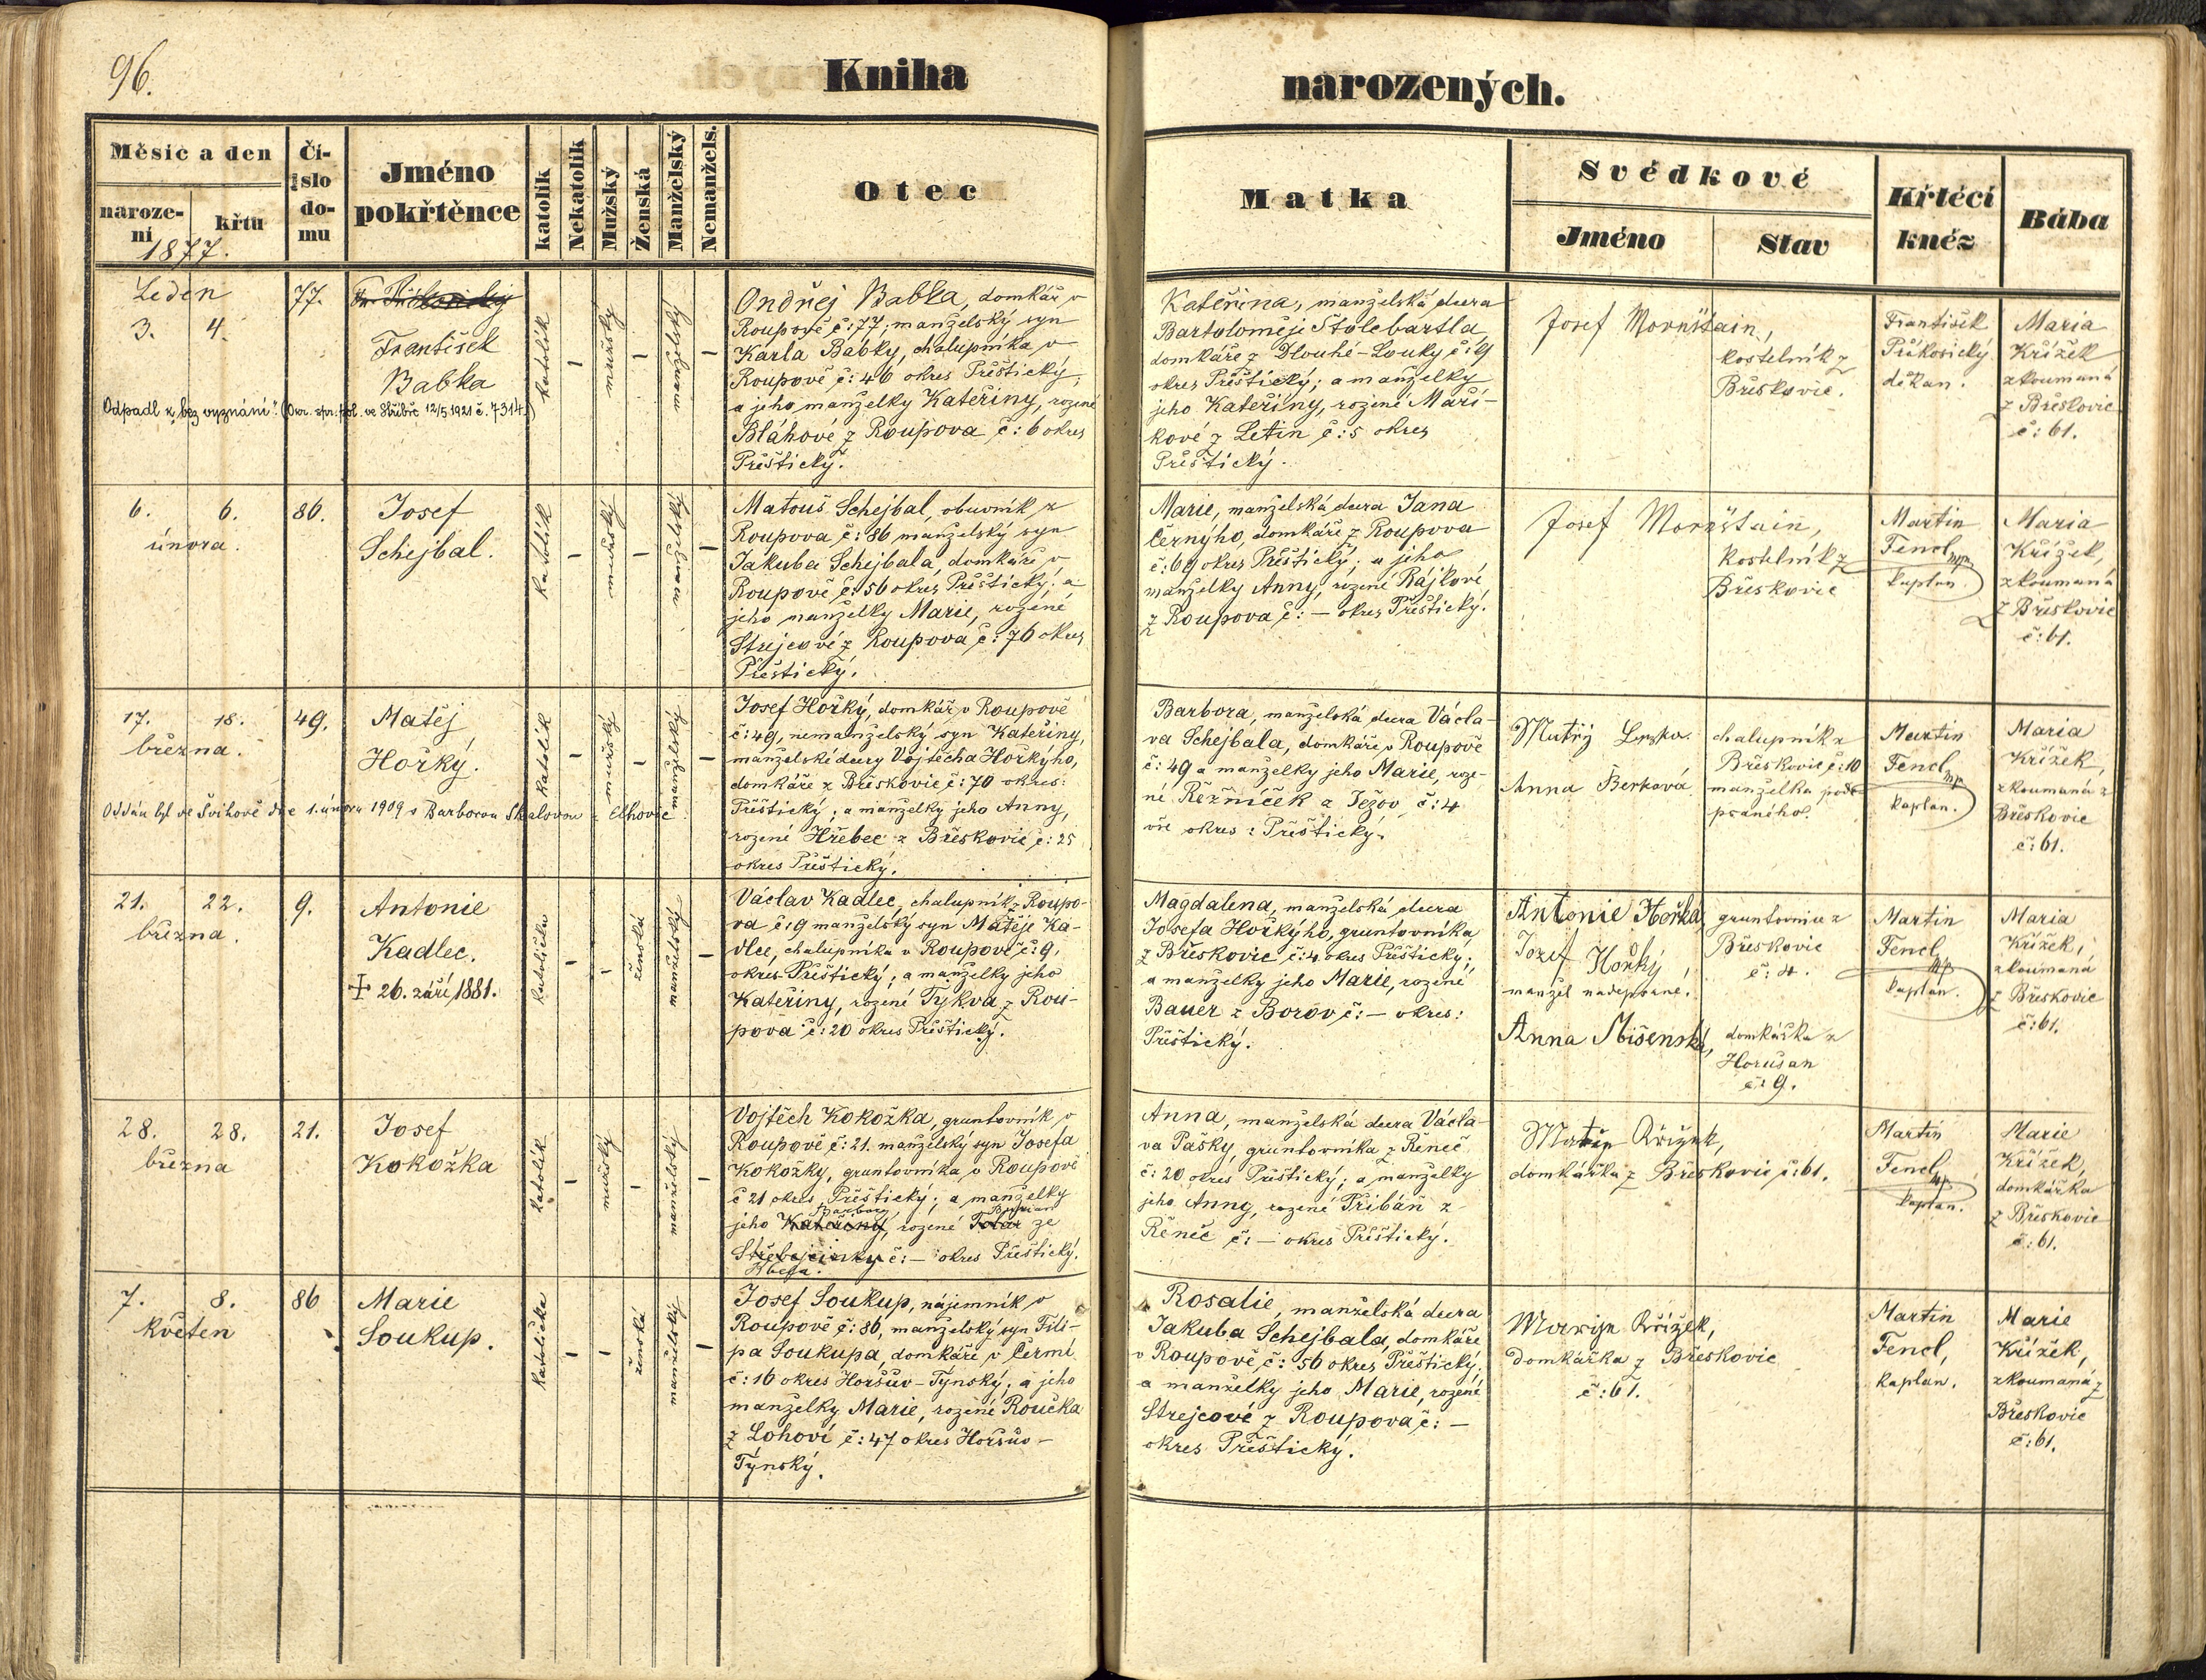 96.
Kniha narozených.
Měsíc a den
naroze-
ní
křtu
1877.
Čí-
slo
do-
mu
Jméno
pokřtěnce
katolík
Nekatolík
Mužský
Ženská
Manželský
Nemanžels.
Otec
Matka
Svědkové
Jméno
Stav
Křtécí
kněz
Bába
Leden
3. 4.
77.
František
Babka
Odpadl k „bez vyznání". (Okr. spr. pol. ve Stříbře 12/5 1921 č. 7314.)
katolík
–
mužský
–
manželský
–
Ondřej Babka, domkář v
Roupově č: 77, manželský syn
Karla Babky, chalupníka v
Roupově č: 46 okres Přeštický;
a jeho manželky Kateřiny, rozené
Bláhové z Roupova č: 6 okres
Přeštický.
Kateřina, manželská dcera
Bartoloměje Štolebartla,
domkáře z Dlouhé-Louky č: 9
okres Přeštický; a manželky
jeho Kateřiny, rozené Maří-
kové z Letin č: 5 okres
Přeštický.
Josef Mornštain,
kostelník z
Břeskovic.
František
Příkosický
děkan.
Maria
Křížek
zkoumaná
z Břeskovic
č: 61.
6. 6.
února.
86.
Josef
Schejbal.
katolík
–
mužský
–
manželský
–
Matouš Schejbal, obuvník z
Roupova č: 86 manželský syn
Jakuba Schejbala, domkáře v
Roupově č: 56 okres Přeštický; a
jeho manželky Marie, rozené
Strejcové z Roupova č: 76 okres
Přeštický.
Marie, manželská dcera Jana
Černýho, domkáře z Roupova
č: 69 okres Přeštický; a jeho
manželky Anny, rozené Rájkové
z Roupova č: – okres Přeštický.
Josef Mornštain,
kostelník z
Břeskovic
Martin
Fencl mp.
kaplan.
Maria
Křížek,
zkoumaná
z Břeskovic
č: 61.
17. 18.
března.
49.
Matěj
Hořký.
Oddán byl ve Švihově dne 1. února 1909 s Barborou Skalovou z Elhovic
katolík
–
mužský
–
manželský
–
Josef Hořký, domkář v Roupově
č: 49, nemanželský syn Kateřiny,
manželské dcery Vojtěcha Hořkýho,
domkáře z Břeskovic č: 70 okres:
Přeštický; a manželky jeho Anny,
rozené Hřebec z Břeskovic č: 25
okres Přeštický.
Barbora, manželská dcera Václa-
va Schejbala, domkáře v Roupově
č: 49 a manželky jeho Marie, roze-
né Řežníček z Ježov č: 4
vše okres: Přeštický.
Anna Berková
chalupník z
Břeskovic č: 10
manželka pode
psaného.
Martin
Fencl mp.
kaplan.
Maria
Křížek,
zkoumaná z
Břeskovic
č: 61.
21. 22.
března.
9.
Antonie
Kadlec.
✝ 26. září 1881.
katolička
–
–
ženská
manželský
–
Václav Kadlec, chalupník z Roupo-
va č: 9 manželský syn Matěje Ka-
dlec, chalupníka v Roupově č: 9,
okres Přeštický; a manželky jeho
Kateřiny, rozené Tykva z Rou-
pova č: 20 okres Přeštický.
Magdalena, manželská dcera
Josefa Hořkýho, gruntovníka
z Břeskovic č: 4 okres Přeštický;
a manželky jeho Marie, rozené
Bauer z Borov č: – okres:
Přeštický.
Antonie Hořká,
Jozef Hořký
manžel nadepsané.
Anna Míšenská,
gruntovnice z
Břeskovic
č: 4.
domkářka z
Horušan
č: 9.
Martin
Fencl mp.
kaplan.
Maria
Křížek,
zkoumaná
z Břeskovic
č: 61.
28. 28.
března
21.
Josef
Kokožka
katolík
–
mužský
–
manželský
–
Vojtěch Kokožka, gruntovník v
Roupově č: 21. manželský syn Josefa
Kokožky, gruntovníka v Roupově
č 21 okres Přeštický; a manželky
Barbory
jeho Kateřiny, rozené ze
č: – okres Přeštický.
Anna, manželská dcera Václa-
va Pašky, gruntovníka z Řeneč
č: 20 okres Přeštický; a manželky
jeho Anny, rozené Přibáň z
Řeneč č: – okres Přeštický.
domkářka z Břeskovic č: 61.
Martin
Fencl mp.
kaplan.
Marie
Křížek,
domkářka
z Břeskovic
č: 61.
7. 8.
květen
86
Marie
Soukup.
katolička
–
–
ženská
manželský
–
Josef Soukup, nájemník v
Roupově č: 86, manželský syn Fili-
pa Soukupa, domkáře v Čermé
č: 16 okres Horšův-Týnský; a jeho
manželky Marie, rozené Roučka
z Lohoví č: 47 okres Horšův-
Týnský.
Rosalie, manželská dcera
Jakuba Schejbala, domkáře
v Roupově č: 56 okres Přeštický;
a manželky jeho Marie, rozené
Strejcové z Roupova č: –
okres Přeštický.
Křížek,
domkářka z Břeskovic
č: 61.
Martin
Fencl,
kaplan.
Marie
Křížek,
zkoumaná z
Břeskovic
č: 61.